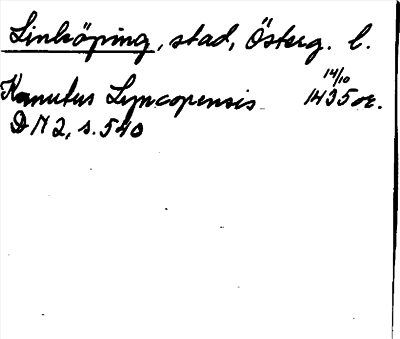 Linköping, stad, Österg. l.
Kanutus Lyncopensis 14/10 1435 or.
D N 2, s. 540